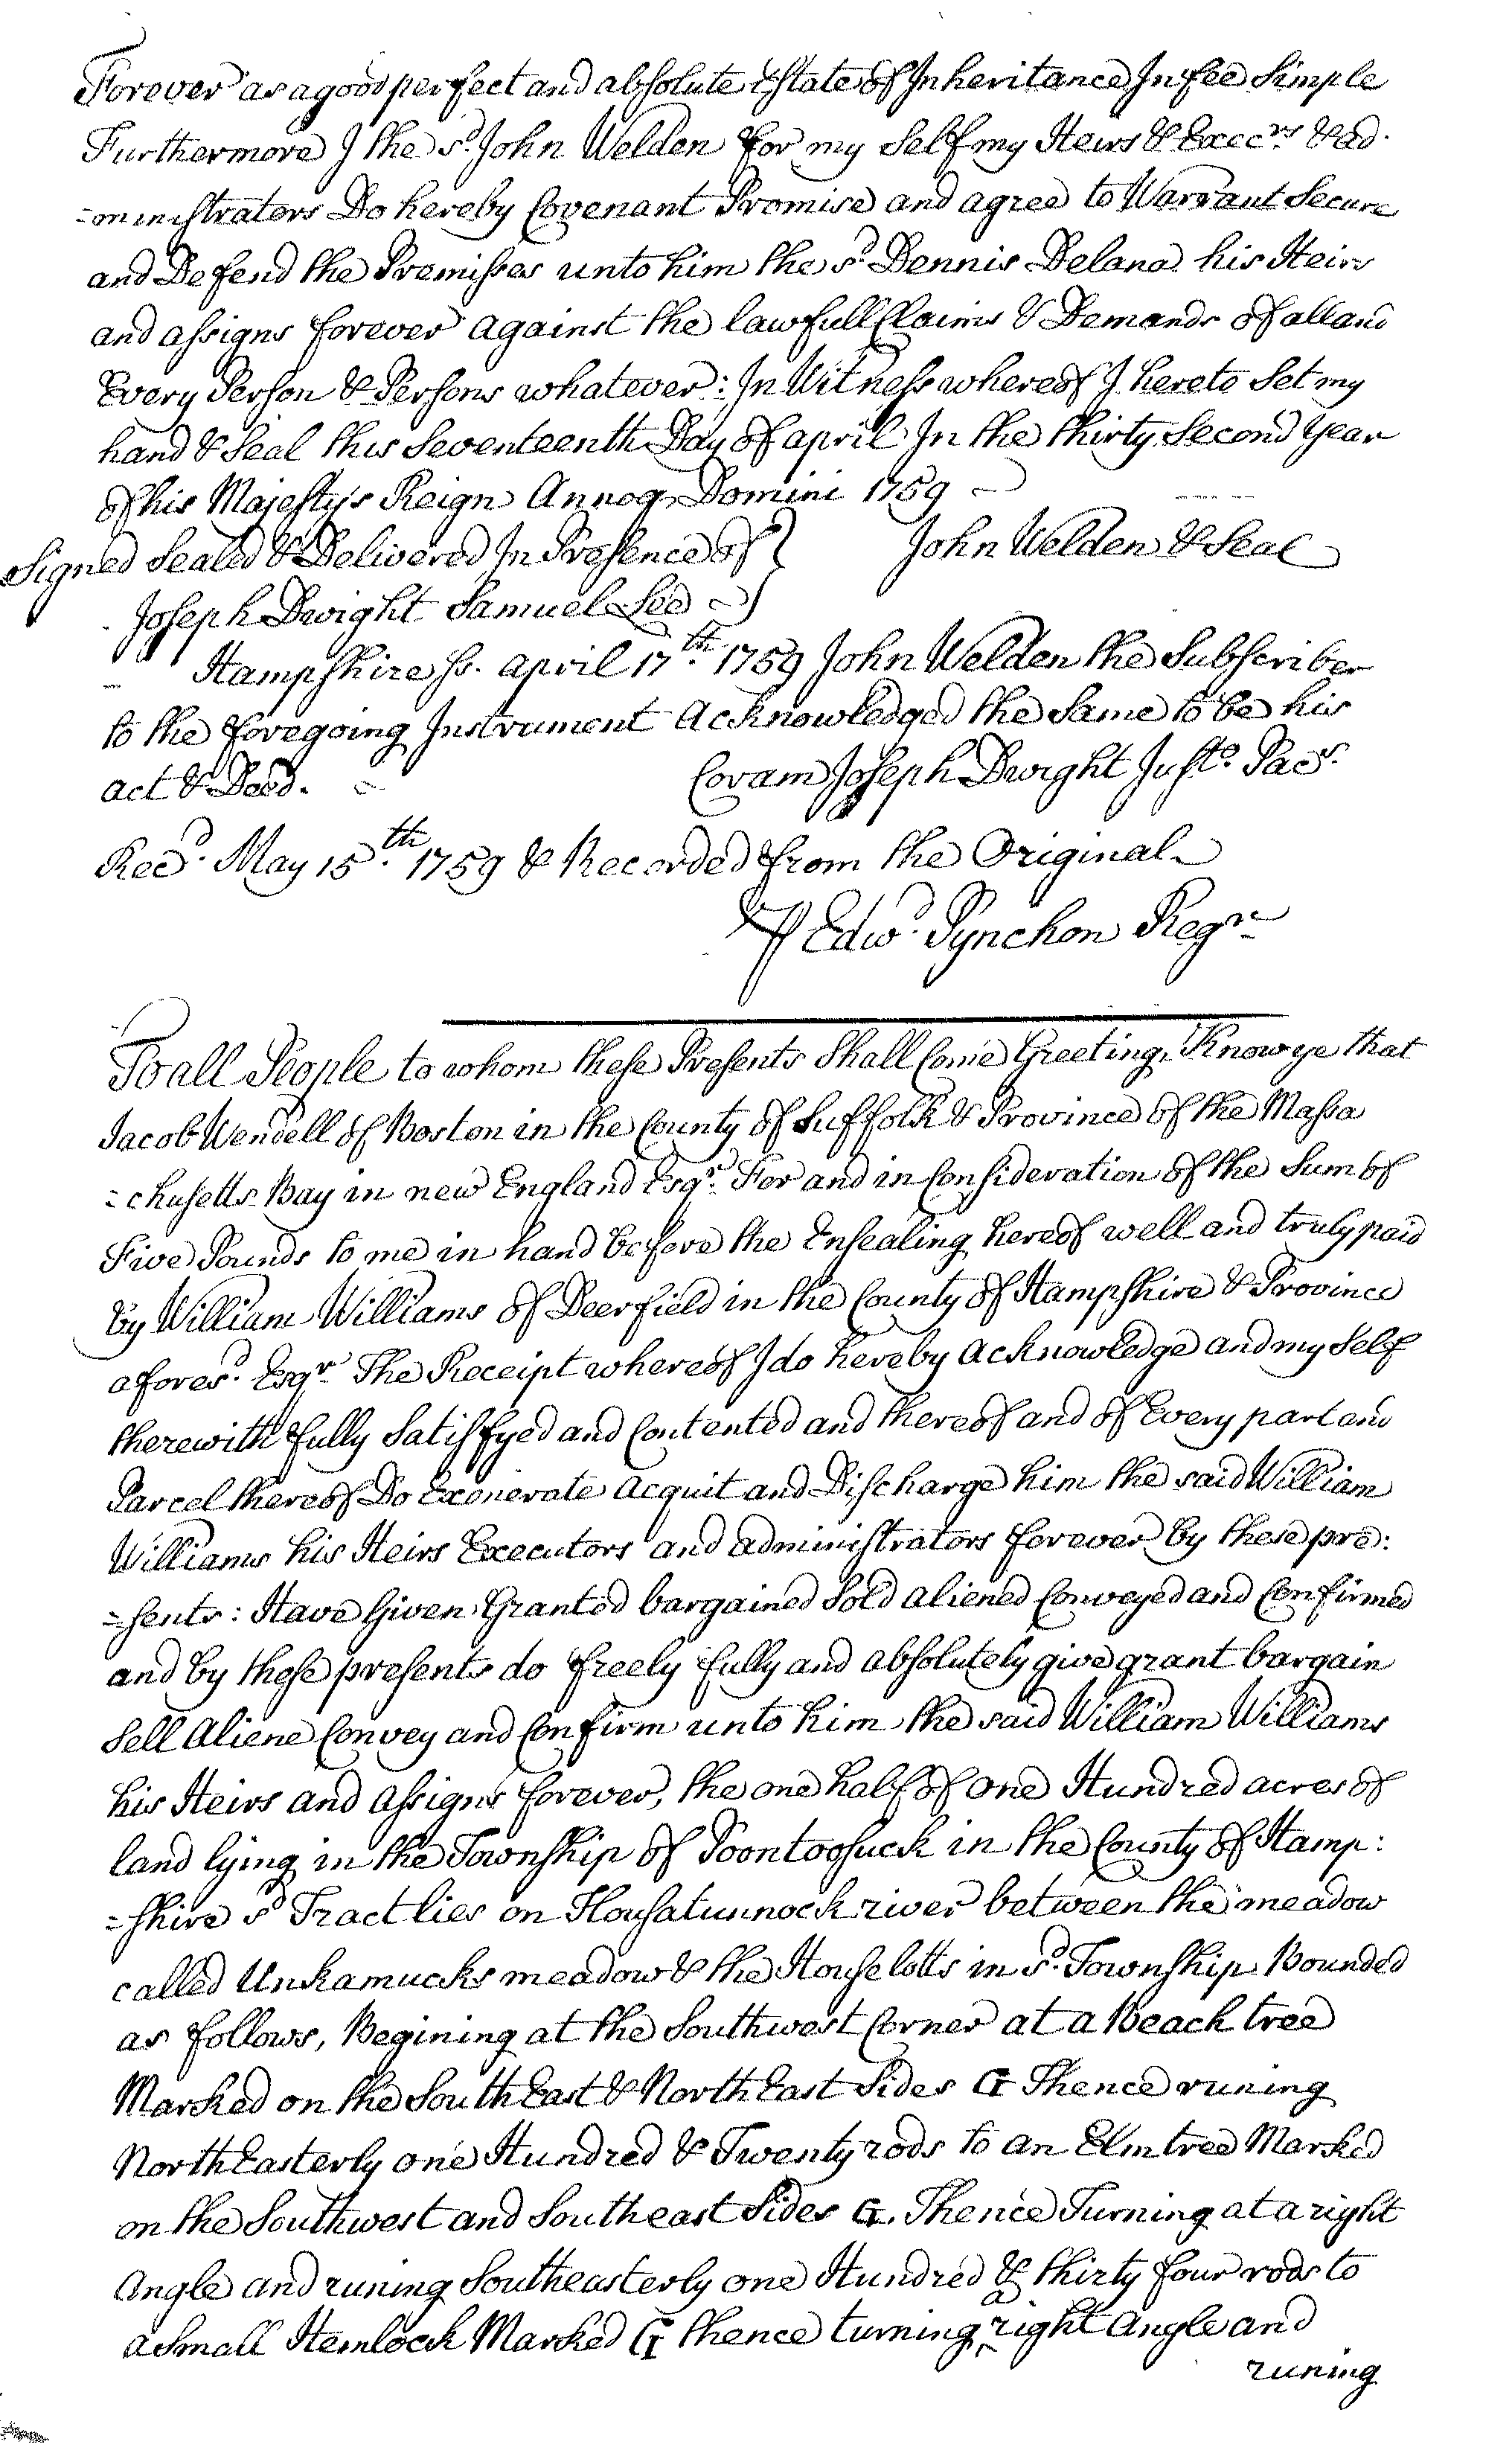 Forever as a good perfect and absolute Estate of Inheritance In fee Simple
Furthermore I the sd. John Welden for my Self my Heirs & Execrs & ad-
=ministrators Do hereby Covenant Promise and agree to Warrant Secure
and Defend the Premisses unto him the sd. Dennis Delano his Heirs
and assigns forever against the lawfull Claims & Demands of all and
Every Person & Persons whatever: In Witness whereof I hereto Set my
hand & Seal this Seventeenth Day of april In the thirty Second Year
of his Majesty's Reign Annoq Domini 1759
Signed Sealed & Delivered In Presence of } John Welden & Seal
Joseph Dwight Samuel Lee
Hampshire ss. april 17th. 1759 John Welden the Subscriber
to the foregoing Instrument Acknowledged the Same to be his
act & Deed. Coram Joseph Dwight Justo. Pacs.
Recd. May 15th. 1759 & Recorded from the Original
⅌ Edwd. Pynchon Regr.
To all People to whom these Presents Shall Come Greeting, Know ye that
Jacob Wendell of Boston in the County of Suffolk & Province of the Massa
=chusetts Bay in new England Esqr. For and in Consideration of the Sum of
Five Pounds to me in hand before the Ensealing hereof well and truly paid
by William Williams of Deerfield in the County of Hampshire & Province
afores.d Esqr. The Receipt whereof I do hereby acknowledge and my Self
therewith fully Satisfyed and Contented and thereof and of Every part and
Parcel thereof Do Exonerate acquit and Discharge him the said William
Williams his Heirs Executors and administrators forever by these pre:
=sents: Have Given Granted bargained Sold aliened Conveyed and Confirmed
and by these presents do freely fully and absolutely give grant bargain
Sell Aliene Convey and Confirm unto him the said William Williams
his Heirs and Assigns forever, the one half of one Hundred acres of
land lying in the Township of Poontoosuck in the County of Hamp:
=shire sd Tract lies on Housatunnock river between the meadow
called Unkamucks meadow & the House lotts in sd. Township Bounded
as follows, Begining at the Southwest Corner at a Beach tree
Marked on the South East & North East Sides G Thence runing
North Easterly one Hundred & Twenty rods to an Elm tree Marked
on the Southwest and Southeast Sides G. Thence Turning at a right
Angle and runing Southeasterly one Hundred & thirty four rods to
a Small Hemlock Marked G thence turning a right Angle and
runing